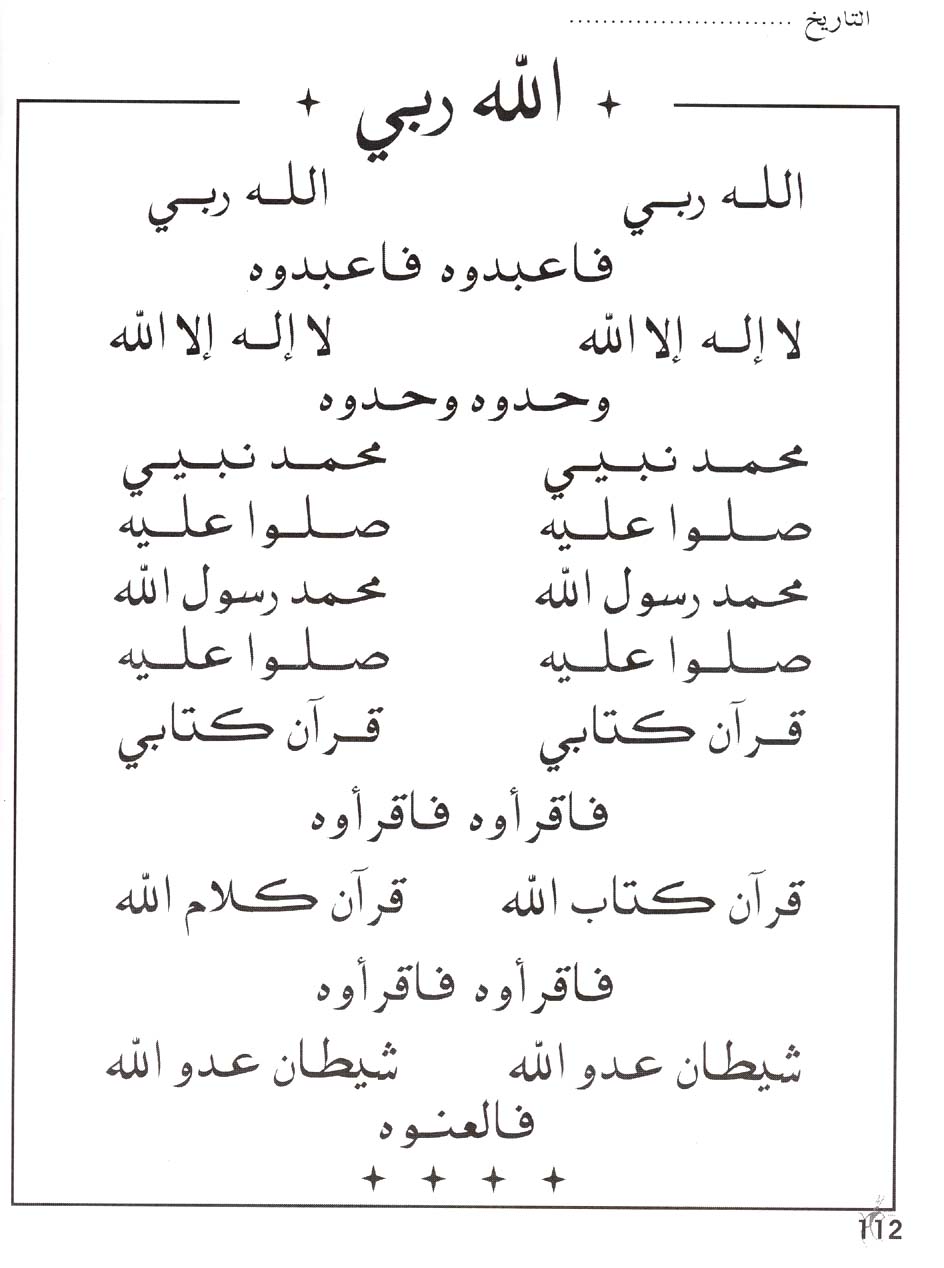 التاريخ ..............................
الله ربي
الله ربي الله ربي
فاعبدوه فاعبدوه
لا إله إلا الله لا إله إلا الله
وحدوه وحدوه
محمد نبيي محمد نبيي
صلوا عليه صلوا عليه
محمد رسول الله محمد رسول الله
صلوا عليه صلوا عليه
قرآن كتابي قرآن كتابي
فاقرأوه فاقرأوه
قرآن كتاب الله قرآن كلام الله
فاقرأوه فاقرأوه
شيطان عدو الله شيطان عدو الله
فالعنوه
112